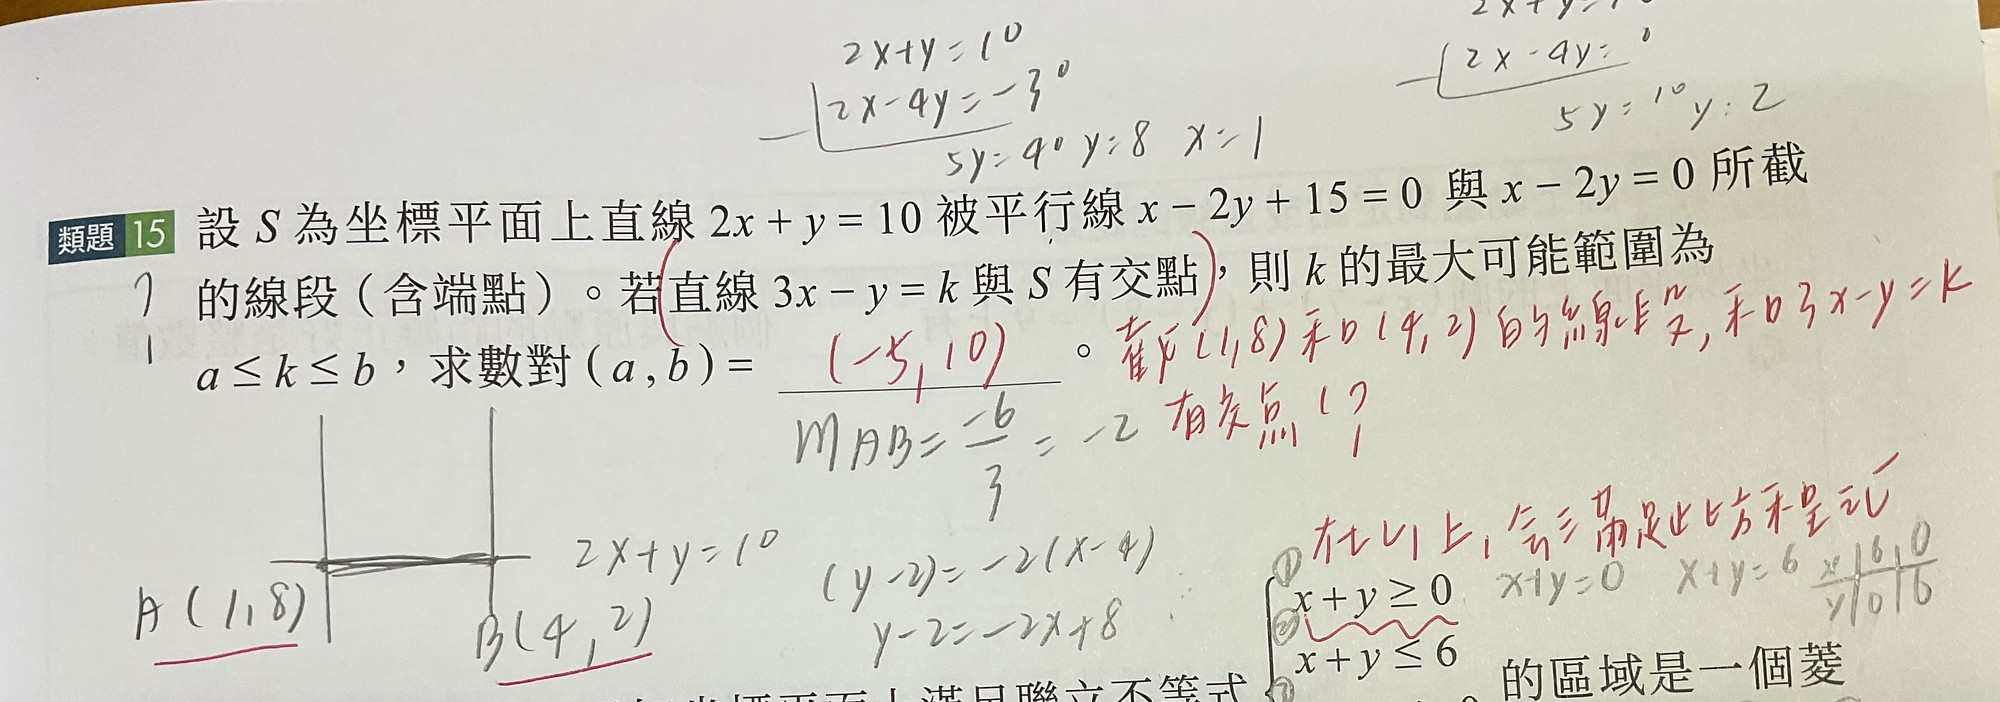 2x+y=10
2x-4y=-30
5y=40 y=8 x=1
2x+y=10
2x-4y=0
5y=10 y=2
類題 15 設 S 為坐標平面上直線 2x + y = 10 被平行線 x − 2y + 15 = 0 與 x − 2y = 0 所截
的線段（含端點）。若直線 3x − y = k 與 S 有交點，則 k 的最大可能範圍為
a ≤ k ≤ b，求數對 ( a , b ) = (-5, 10) 。
(1,8) 和 (4,2) 的線段, 和 3x-y=k
有交点 (?
mAB = -6/3 = -2
2x+y=10
A(1,8)
B(4,2)
(y-2)=-2(x-4)
y-2=-2x+8
在以上, 會滿足此方程式
① x + y ≥ 0
② x + y ≤ 6
③
x+y=0 x+y=6
x 6 0
y 0 6
的區域是一個菱
坐標平面上滿足聯立不等式